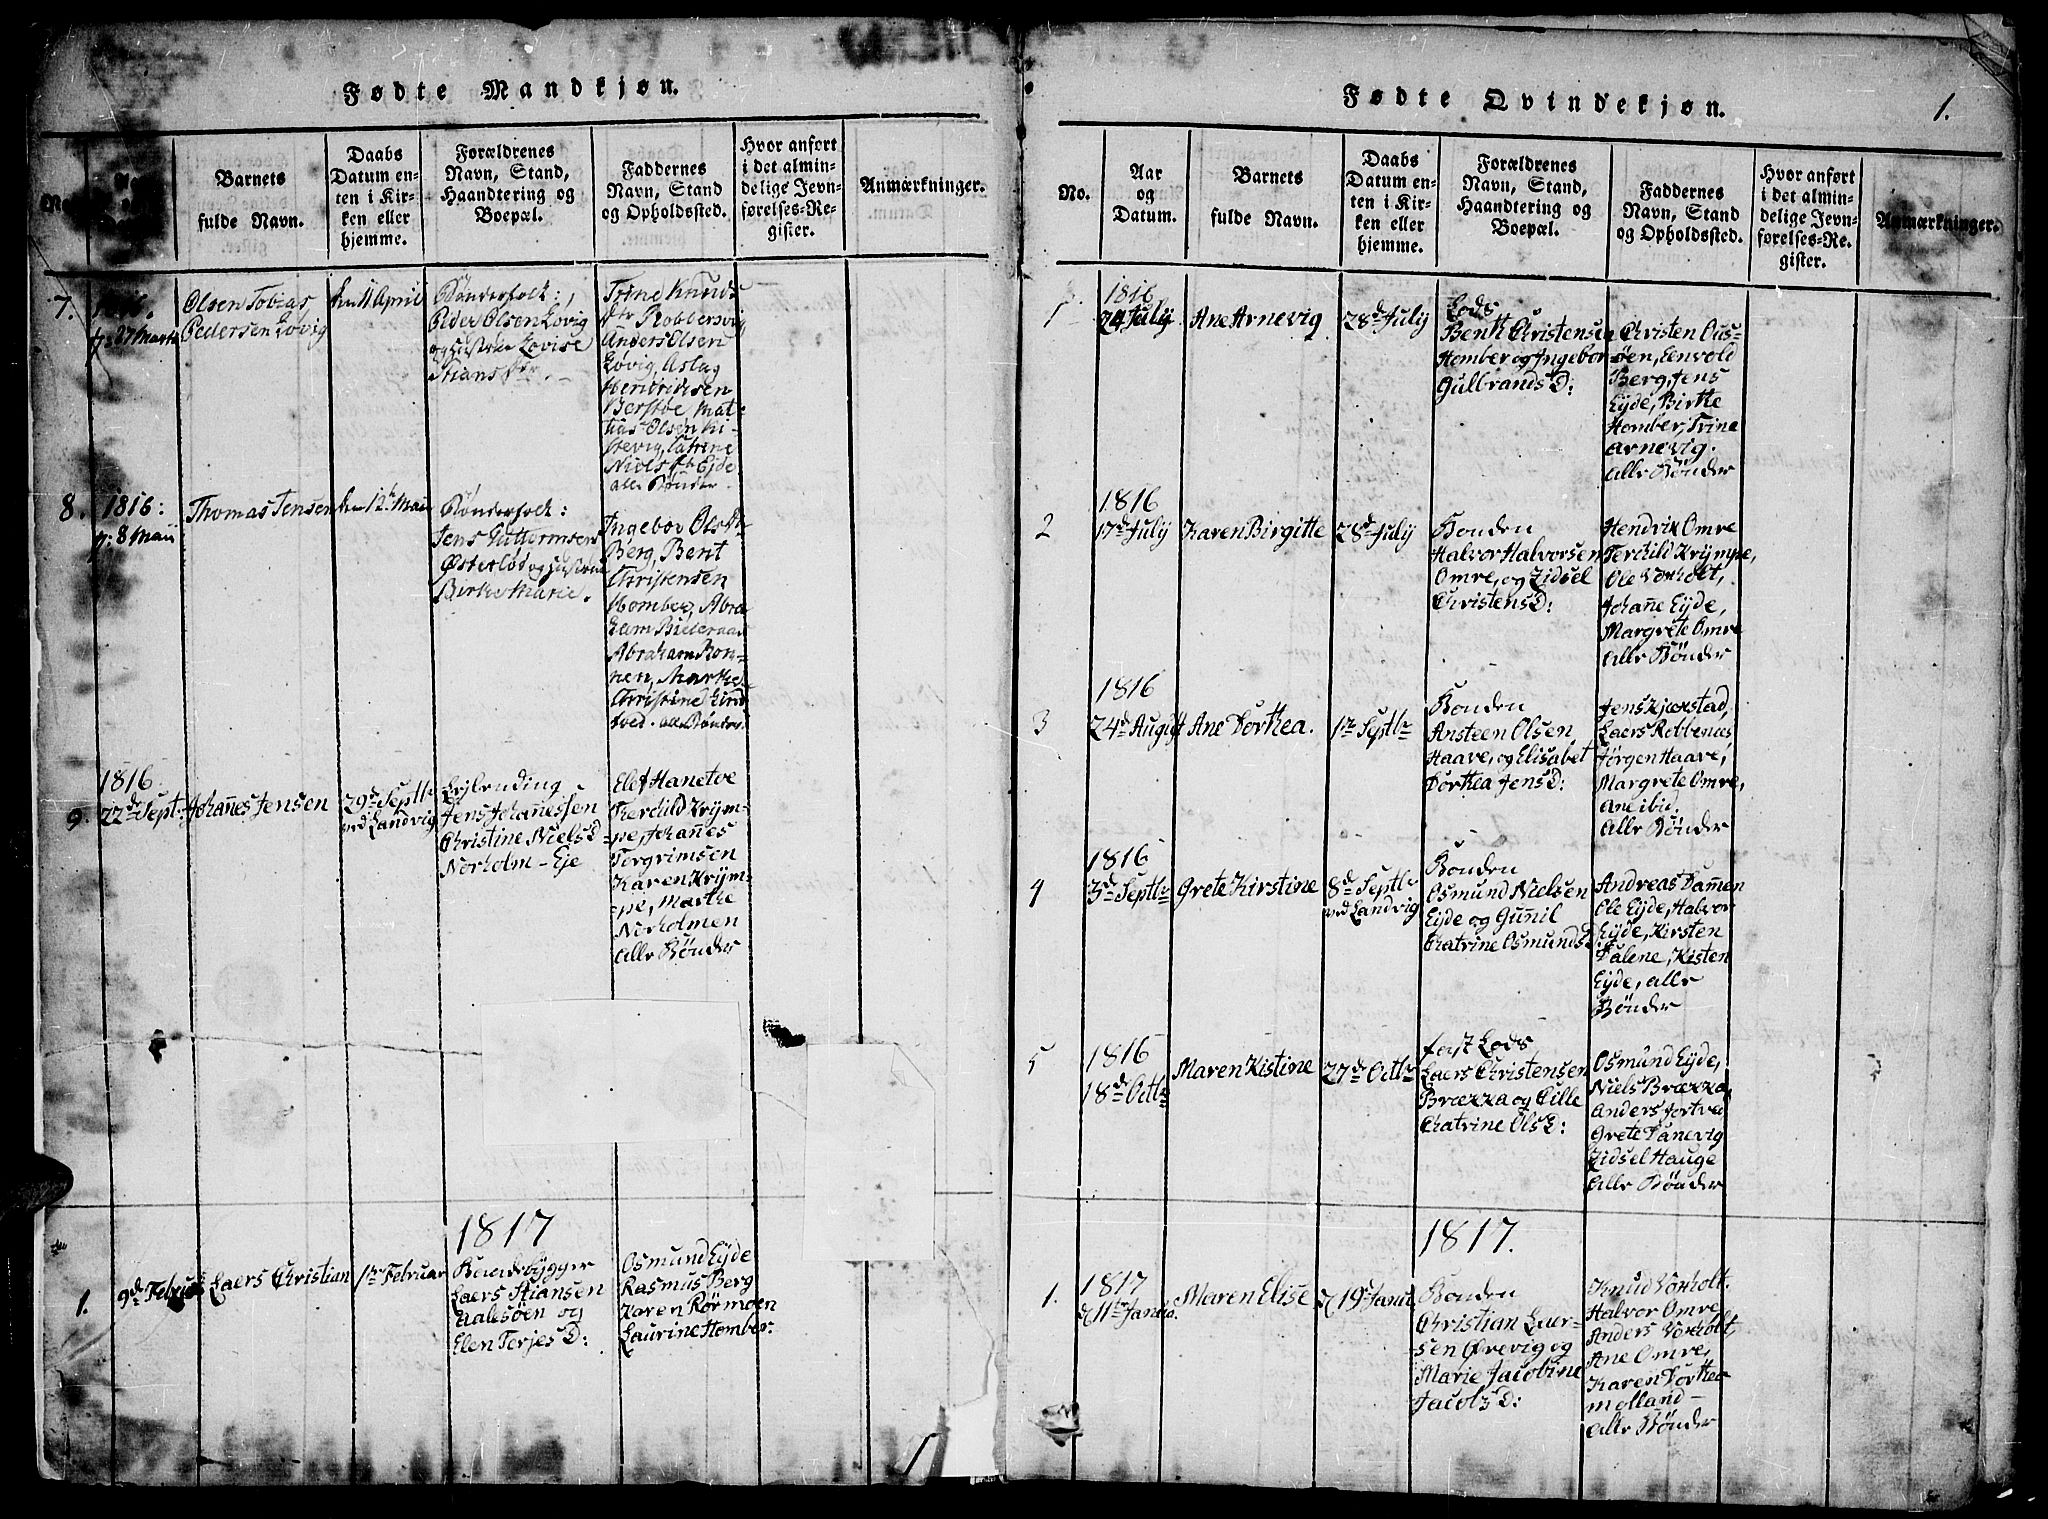 Fødte Mandkjøn.
Barnets
fulde Navn.
Daabs
Datum en-
ten i Kir-
ken eller
hjemme.
Forældrenes
Navn, Stand,
Haandtering og
Boepæl.
Faddernes
Navn, Stand
og Opholdssted.
Hvor anført
i det almin-
delige Jevn-
førelses-Re-
gister.
Anmærkninger.
7.
27 Marts
Olsen Tobias
Pedersen Løvig
den 11 April
Bønderfolk:
Peder Olsen Løvig
og Hustrue Lovise
Stians
Trine Knuds
Anders Olsen
Løvig, Aslag
Hendriksen
Berstøe, Mat-
tias Olsen Ki-
Niels Eyde
alle Bønder.
8.
1816:
8 Maii
Thomas Jensen
den 12 Maii
Bønderfolk:
Jens Guttormsen
Østerløt og Hustrue
Birthe Marie.
Ingebor Ols
Berg, Bent
Christensen
Homber, Abra-
ham
Abraham Ron-
nen, Marthe
Christine
tved. alle Bønder
9.
1816
22d Sept:
Johanes Jensen
29d Septbr
ved Landvig
Lejlending
Jens Johanessen
Christine Niels D
Norholm-Eje
Elef Hanetoe
Therchild Krym-
pe, Johanes
Torgrimsen
Karen Krym-
pe, Marthe
Norholmen
alle Bønder
1817
1.
9d Februar
Laers Christian
1ste Februar
Bondebygger
Laers Stiansen
Aalesøen og
Elen Terjes D:
Osmund Eyde
Rasmus Berg
Karen Rørmoen
Laurine Homber.
Fødte Qvindekjøn.
1.
No.
Aar
og
Datum.
Barnets
fulde Navn.
Daabs
Datum en-
ten i Kir-
ken eller
hjemme.
Forældrenes
Navn, Stand,
Haandtering og
Boepæl.
Faddernes
Navn, Stand
og Opholdssted.
Hvor anført
i det almin-
delige Jevn-
førelses-Re-
gister.
Anmærkninger.
1
1816
24 July
Ane Arnevig
28d July
Lods
Benth Christensen
Homber og Ingebor
Gulbrands D:
Christen Aus-
øen, Eenvold
Berg, Jens
Eyde, Birthe
Homber, Trine
Arnevig.
alle Bønder
2
1816
17d July
Karen Birgitte
28d July
Bonden
Halvor Halvorsen
Omre, og Zidsel
Christens D:
Hendrix Omre
Terchild Krympe,
Ole Voxholt,
Johane Eyde,
Margrete Omre
alle Bønder
3
1816
24d August
Ane Dorthea.
1ste Septbr
Bonden
Ansteen Olsen
Haave, og Elisabet
Dorthea Jens D:
Jens Kjæxstad,
Laers Robbenes
Jørgen Haave,
Margrete Omre,
Ane ibid.
alle Bønder
4
1816
3d Septbr
Grete Kirstine
8d Septbr
ved Landvig
Bonden
Osmund Nielsen
Eyde og Gunil
Chatrine Osmunds D:
Andreas Dammen
Ole Eyde, Halvor
Eyde, Kirsten
Dalene, Kisten
Eyde, alle
Bønder
5
1816
18d Octbr
Maren Kistine
27d Octbr
fast Lods
Laers Christensen
Bræxxa og Cille
Chatrine Ols D:
Osmund Eyde,
Niels Bræxxa,
Anders Fortve
Grete Danevig
Zidsel Hauge
alle Bønder
1817.
1.
1817
d 11te Janua.
Maren Elise
d 19d Janu.
Bonden
Christian Laer-
sen Ørevig og
Marie Jacobine
Jacobs D:
Knud Voxholt.
Halvor Omre
Anders Voxholt,
Ane Omre,
Karen Dorthea
Molland-
alle Bønder